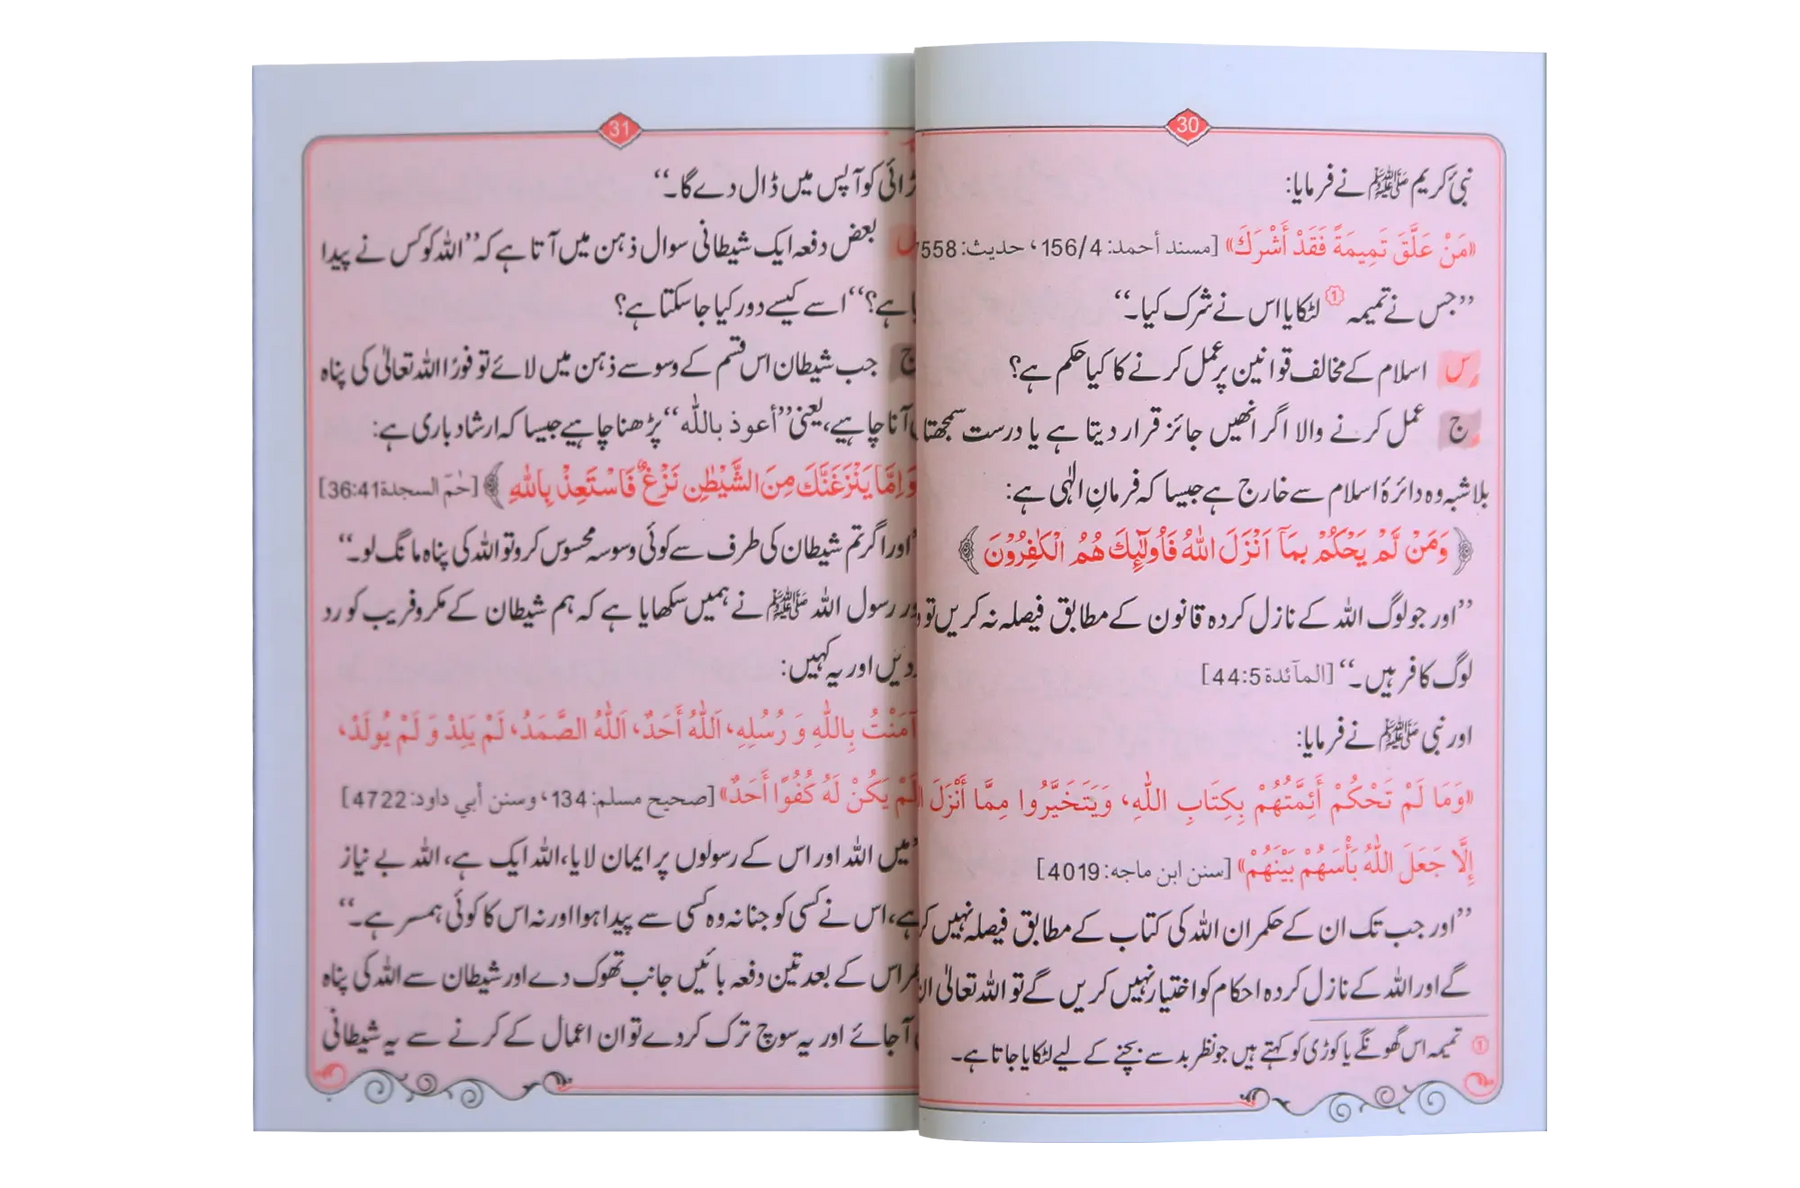 30
نبیٔ کریم ﷺ نے فرمایا:
«مَنْ عَلَّقَ تَمِيمَةً فَقَدْ أَشْرَكَ» [مسند أحمد: 156/4، حديث: 7558
’’جس نے تمیمہ ① لٹکایا اس نے شرک کیا۔‘‘
س اسلام کے مخالف قوانین پر عمل کرنے کا کیا حکم ہے؟
ج عمل کرنے والا اگر انھیں جائز قرار دیتا ہے یا درست سمجھتا
بلاشبہ وہ دائرۂ اسلام سے خارج ہے جیسا کہ فرمانِ الٰہی ہے:
﴿وَمَنْ لَّمْ يَحْكُمْ بِمَآ اَنْزَلَ اللّٰهُ فَاُولٰٓئِكَ هُمُ الْكٰفِرُوْنَ﴾
’’اور جو لوگ اللہ کے نازل کردہ قانون کے مطابق فیصلہ نہ کریں تو
لوگ کافر ہیں۔‘‘ [المآئدة 44:5]
اور نبی ﷺ نے فرمایا:
«وَمَا لَمْ تَحْكُمْ أَئِمَّتُهُمْ بِكِتَابِ اللّٰهِ، وَيَتَخَيَّرُوا مِمَّا أَنْزَلَ
إِلَّا جَعَلَ اللّٰهُ بَأْسَهُمْ بَيْنَهُمْ» [سنن ابن ماجه: 4019]
’’اور جب تک ان کے حکمران اللہ کی کتاب کے مطابق فیصلہ نہیں کر
گے اور اللہ کے نازل کردہ احکام کو اختیار نہیں کریں گے تو اللہ تعالیٰ ان
① تمیمہ اس گھونگے یا کوڑی کو کہتے ہیں جو نظر بد سے بچنے کے لیے لٹکایا جاتا ہے۔
31
ڑائی کو آپس میں ڈال دے گا۔‘‘
س بعض دفعہ ایک شیطانی سوال ذہن میں آتا ہے کہ ’’اللہ کو کس نے پیدا
یا ہے؟‘‘ اسے کیسے دور کیا جاسکتا ہے؟
ج جب شیطان اس قسم کے وسوسے ذہن میں لائے تو فورًا اللہ تعالیٰ کی پناہ
آنا چاہیے، یعنی ’’أعوذ بالله‘‘ پڑھنا چاہیے جیسا کہ ارشاد باری ہے:
وَاِمَّا يَنْزَغَنَّكَ مِنَ الشَّيْطٰنِ نَزْغٌ فَاسْتَعِذْ بِاللّٰهِ﴾ [حٰمٓ السجدة 36:41]
’’اور اگر تم شیطان کی طرف سے کوئی وسوسہ محسوس کرو تو اللہ کی پناہ مانگ لو۔‘‘
ور رسول اللہ ﷺ نے ہمیں سکھایا ہے کہ ہم شیطان کے مکر و فریب کو رد
ردیں اور یہ کہیں:
آمَنْتُ بِاللّٰهِ وَ رُسُلِهِ، اَللّٰهُ أَحَدٌ، اَللّٰهُ الصَّمَدُ، لَمْ يَلِدْ وَ لَمْ يُولَدْ،
لَمْ يَكُنْ لَهُ كُفُوًا أَحَدٌ» [صحيح مسلم: 134، وسنن أبي داود: 4722]
’’میں اللہ اور اس کے رسولوں پر ایمان لایا، اللہ ایک ہے، اللہ بے نیاز
ہے، اس نے کسی کو جنا نہ وہ کسی سے پیدا ہوا اور نہ اس کا کوئی ہمسر ہے۔‘‘
ھر اس کے بعد تین دفعہ بائیں جانب تھوک دے اور شیطان سے اللہ کی پناہ
آجائے اور یہ سوچ ترک کر دے تو ان اعمال کے کرنے سے یہ شیطانی